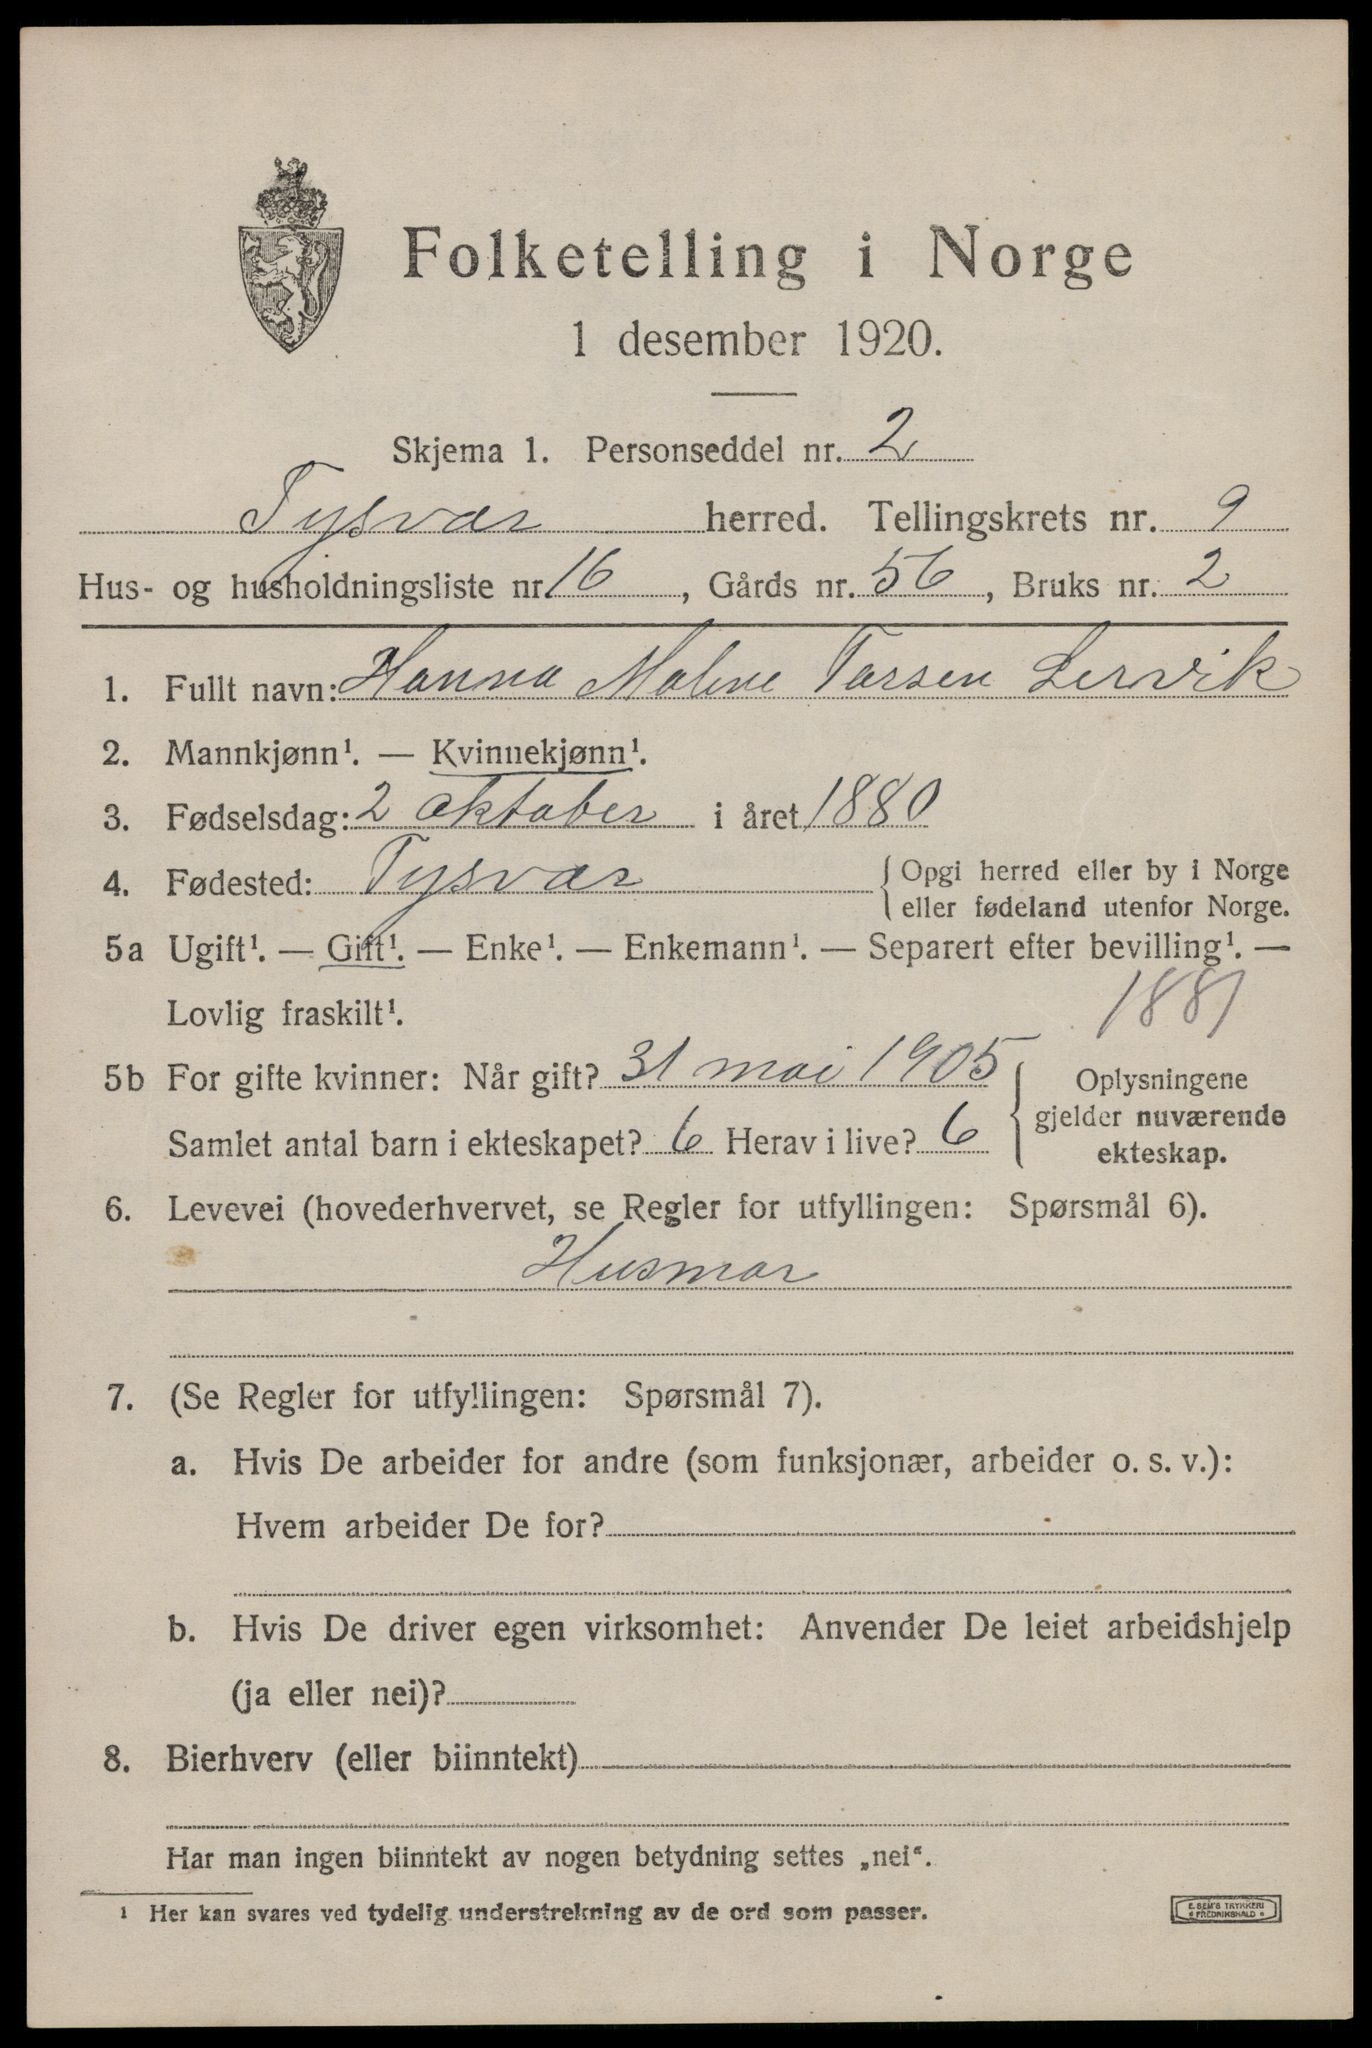 Folketelling i Norge
1 desember 1920.
Skjema 1. Personseddel nr. 2
Tysvær herred. Tellingskrets nr. 9
Hus- og husholdningsliste nr. 16, Gårds nr. 56, Bruks nr. 2
1. Fullt navn: Hanna Malene Tarsen Lervik
2. Mannkjønn¹. — Kvinnekjønn¹.
3. Fødselsdag: 2 oktober i året 1880
4. Fødested: Tysvær { Opgi herred eller by i Norge
eller fødeland utenfor Norge.
5a Ugift¹. — Gift¹. — Enke¹. — Enkemann¹. — Separert efter bevilling¹. —
Lovlig fraskilt¹. 1881
5b For gifte kvinner: Når gift? 31 mai 1905
Samlet antal barn i ekteskapet? 6 Herav i live? 6
{ Oplysningene
gjelder nuværende
ekteskap.
6. Levevei (hovederhvervet, se Regler for utfyllingen: Spørsmål 6).
Husmor
7. (Se Regler for utfyllingen: Spørsmål 7).
a. Hvis De arbeider for andre (som funksjonær, arbeider o. s. v.):
Hvem arbeider De for?
b. Hvis De driver egen virksomhet: Anvender De leiet arbeidshjelp
(ja eller nei)?
8. Bierhverv (eller biinntekt)
Har man ingen biinntekt av nogen betydning settes „nei“.
¹ Her kan svares ved tydelig understrekning av de ord som passer.
E. SEM'S TRYKKERI
* FREDRIKSHALD *